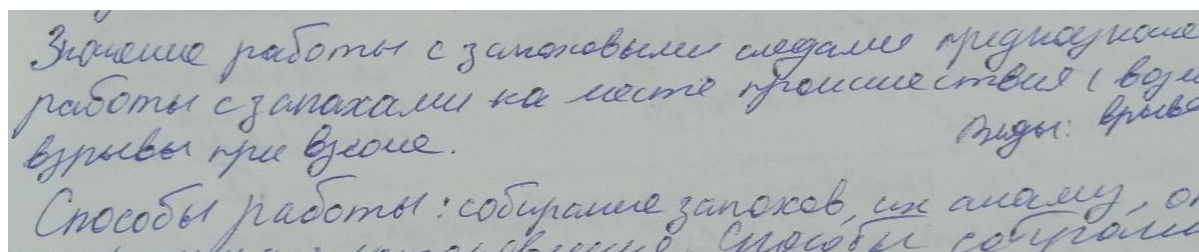 Значение работы с запаховыми следами предназначе
работы с запахами на месте происшествия (возм
Виды: взрыв
взрывы при взломе.
Способы работы: собирание запахов, их анализ, оп
Способы собирани